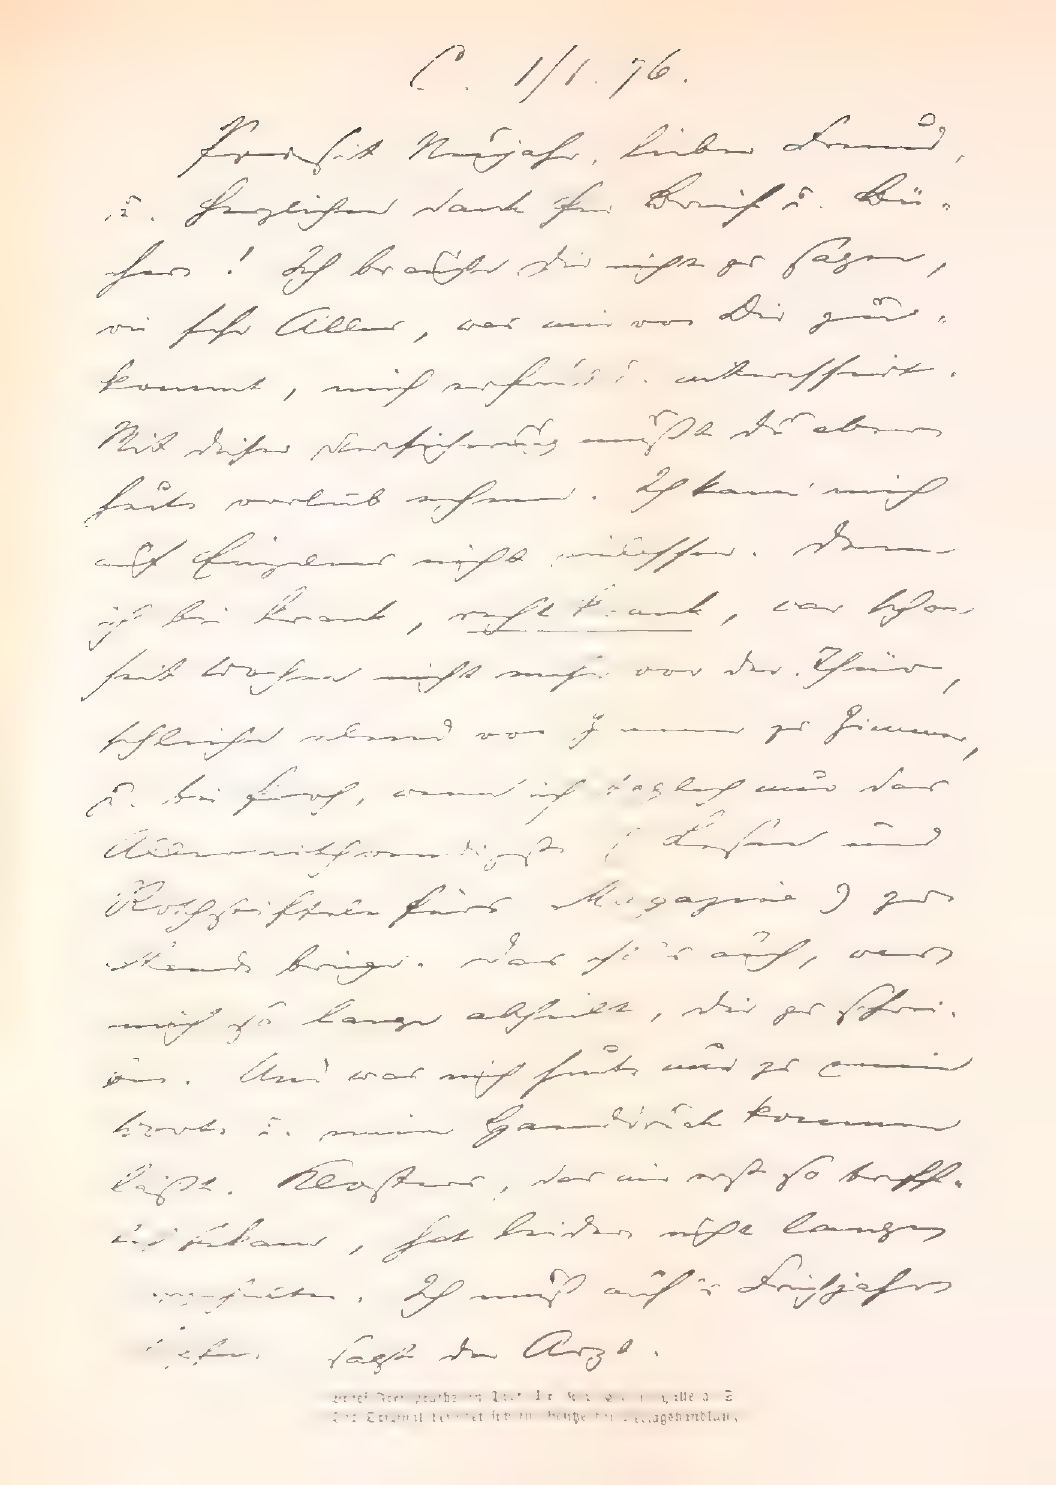 C. 1/1. 76.
Prosit Neujahr, lieber Freund,
u. herzlichen Dank für Brief u. Bü-
cher! Ich brauche Dir nicht zu sagen,
wie sehr Alles, was mir von Dir zu-
kommt, mich erfreut u. interessirt.
Mit dieser Versicherung mußt du eben
heute vorlieb nehmen. Ich kann mich
auf Einzelnes nicht einlassen. Denn
ich bin krank, recht krank, war schon
seit Wochen nicht mehr vor der Thür,
schleiche elend von Zimmer zu Zimmer,
u. bin froh, wenn ich täglich nur das
Allernothwendigste ( Lesen und
Rothstifteln fürs Magazin ) zu
Stande bringe. Das ist's auch, was
mich so lange abhielt, Dir zu schrei-
ben. Und was mich heute nur zu einem
kurzen Gruß u. einem Händedruck kommen
läßt. Klosters, das mir erst so treff-
lich bekam, hat leider nicht lange
. Ich muß auf's Frühjahr
sagt der Arzt.